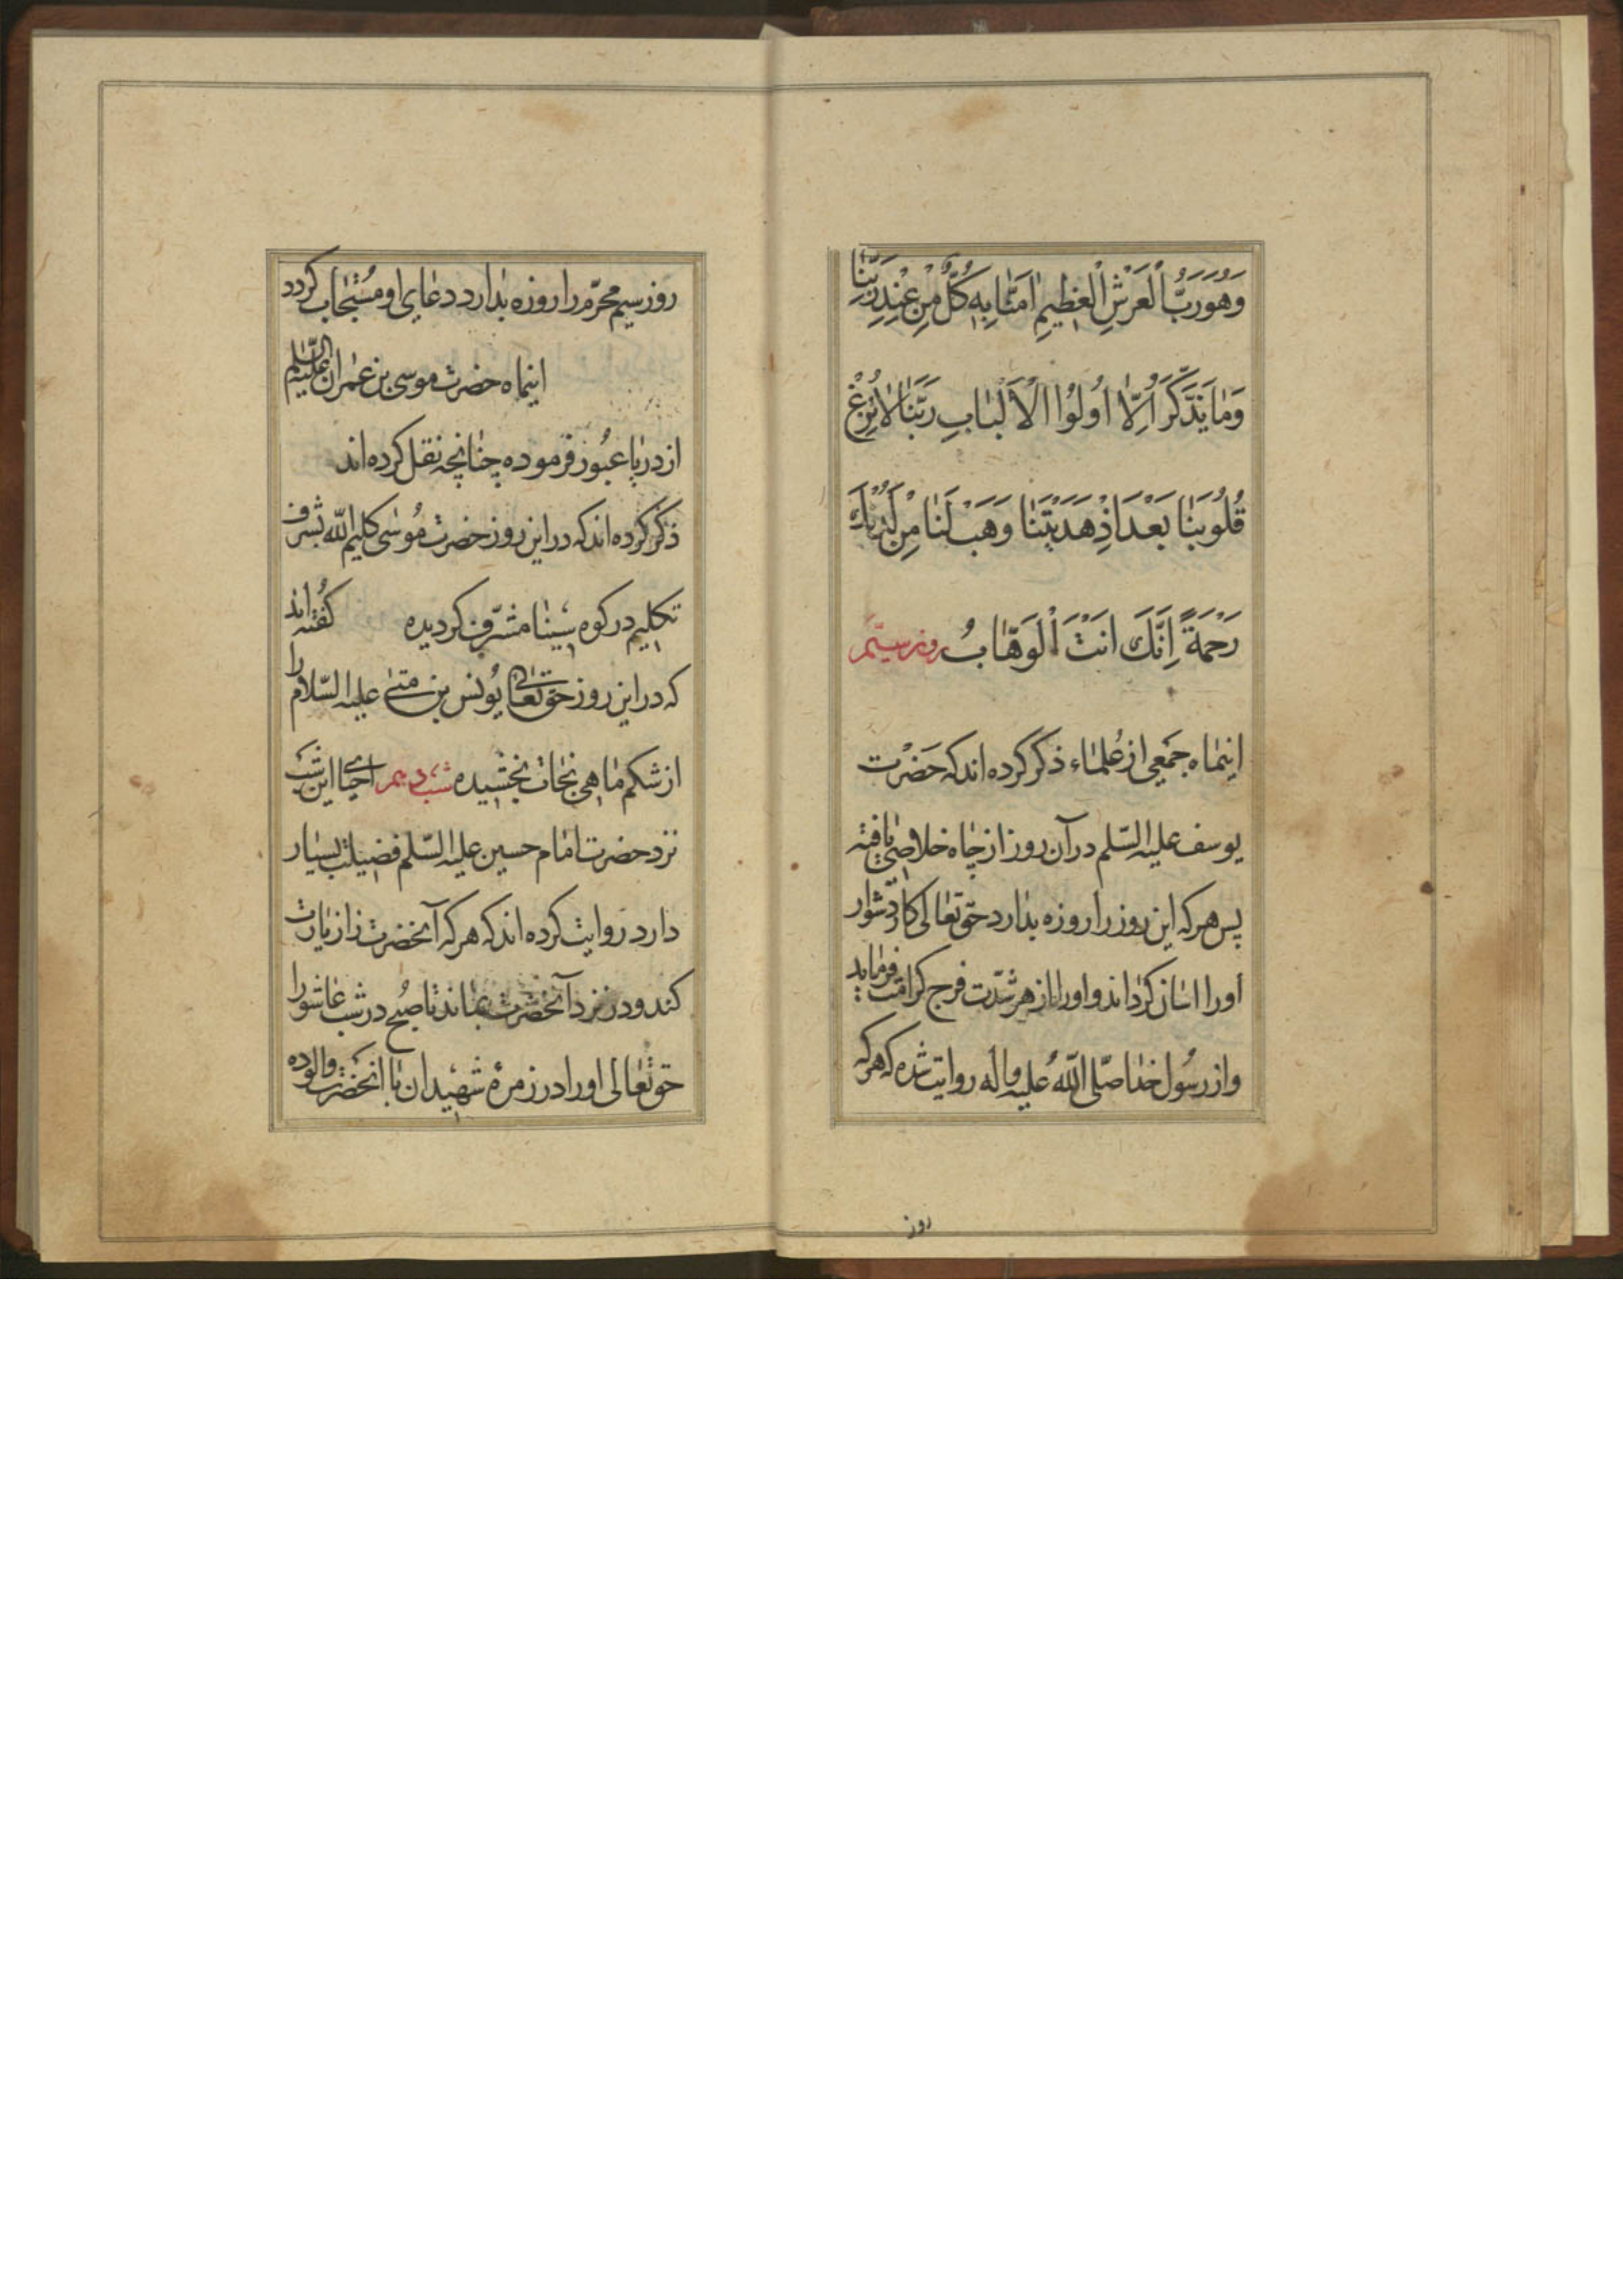 وَهُوَ رَبُّ الْعَرْشِ الْعَظِيمِ اٰمَنَّا بِهٖ كُلٌّ مِنْ عِنْدِ رَبِّنَا
وَمَا يَذَّكَّرُ اِلَّا اُولُوا الْاَلْبَابِ رَبَّنَا لَا تُزِغْ
قُلُوبَنَا بَعْدَ اِذْ هَدَيْتَنَا وَهَبْ لَنَا مِنْ لَدُنْكَ
رَحْمَةً اِنَّكَ اَنْتَ الْوَهَّابُ روز سیّم
اینماه جمعی از علماء ذکر کرده اند که حَضْرت
یوسف علیه السّلم در آن روز از چاه خلاصی یافته
پس هر که این روز را روزه بدارد حقتعالی کار دشوار
اورا اسان کرداند و اورا از هر شدّت فرج کرامت فرماید
و از رسُول خدا صلّی اللّه علیه و اله روایت شده که هر که
روز
روز سیم محرّم را روزه بدارد دعای او مُستجاب کردد
اینماه حضرت موسی بن عمران علیه السّلم
از دریا عبُور فرموده چنانچه نقل کرده اند
ذکر کرده اند که در این روز حضرت مُوسی کلیم اللّه بشرف
تکلیم در کوه سینا مشرّف کردیده کفته اند
که در این روز حقتعالی یُونس بن متی علیه السّلام را
از شکم ماهی نجات بخشیده شب دهم احیا این شب
نزد حضرت امام حسین علیه السّلم فضیلت بسیار
دارد روایت کرده اند که هر که آنحضرت را زیارت
کند و در نزد آنحضرت بماند تا صُبح در شب عاشورا
حقتعالی اورا در زمرهٔ شهیدان با انحضرت والوده